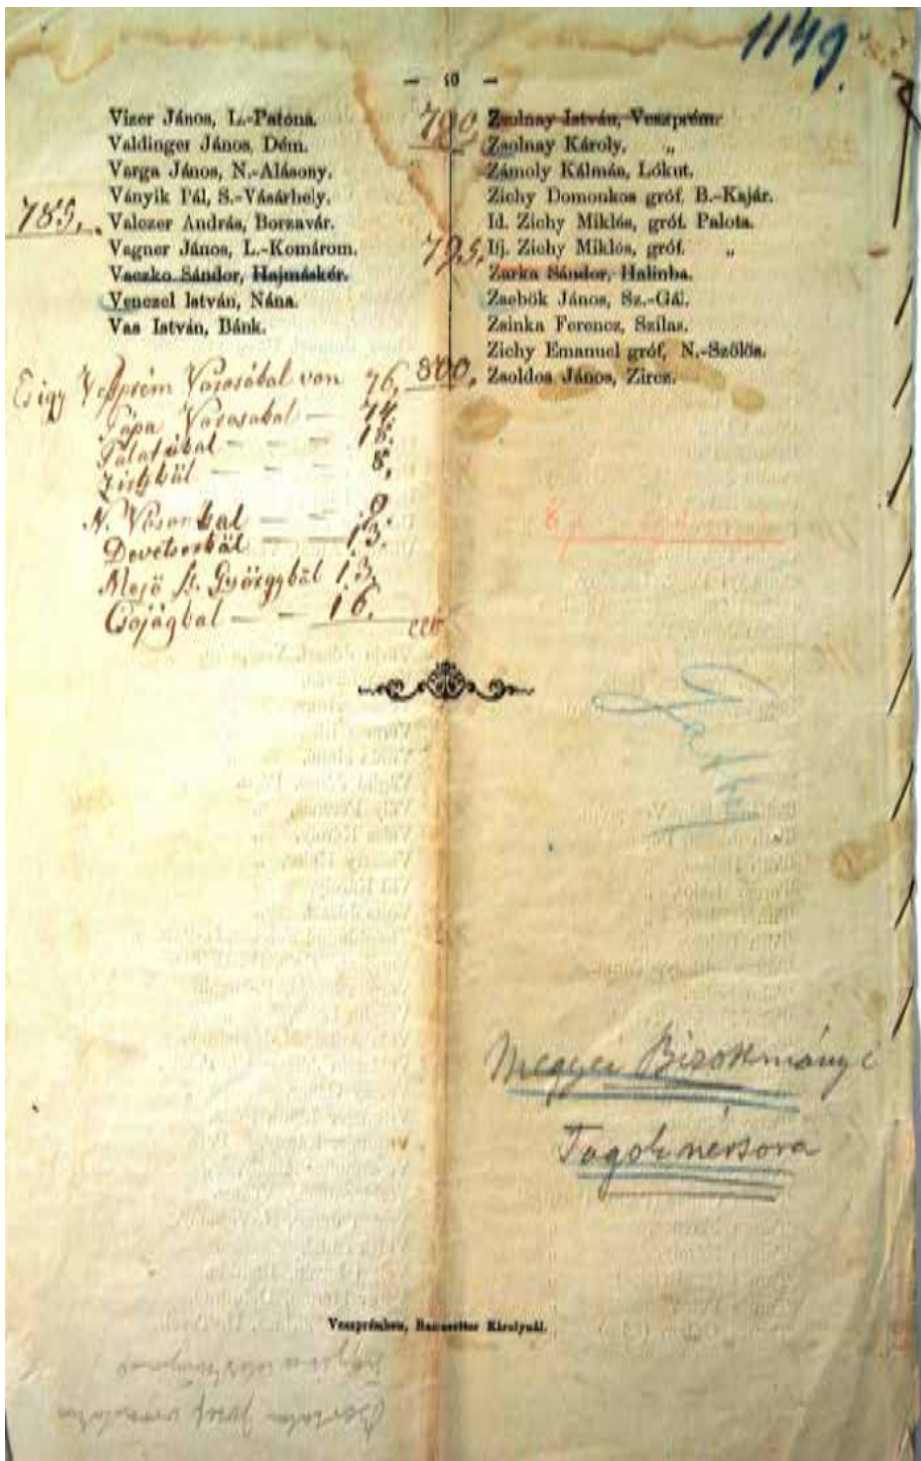 1149.
— 10 —
Vizer János, L.-Patona.
Valdinger János, Dém.
Varga János, N.-Alásony.
Ványik Pál, S.-Vásárhely.
785. Valczer András, Borzavár.
Vagner János, L.-Komárom.
Vaczko Sándor, Hajmáskér.
Venczel István, Nána.
Vas István, Bánk.
790. Zsolnay István, Veszprém.
Zsolnay Károly, „
Zámoly Kálmán, Lókut.
Zichy Domonkos gróf, B.-Kajár.
Id. Zichy Miklós, gróf. Palota.
795. Ifj. Zichy Miklós, gróf. „
Zarka Sándor, Halimba.
Zsebők János, Sz.-Gál.
Zsinka Ferencz, Szilas.
Zichy Emanuel gróf, N.-Szőlős.
800. Zsoldos János, Zircz.
És így Veszprém Városábal van 76,
Pápa Városabal — 74.
Palotábal — — — 18.
— — — 8,
N. — —
Devetserbäl — — 13.
Mejö St. Györgybäl 13.
Csojágbal — — 16.
Megyei Bizottmányi
Tagok névsora
Veszprémben, Károlynál.